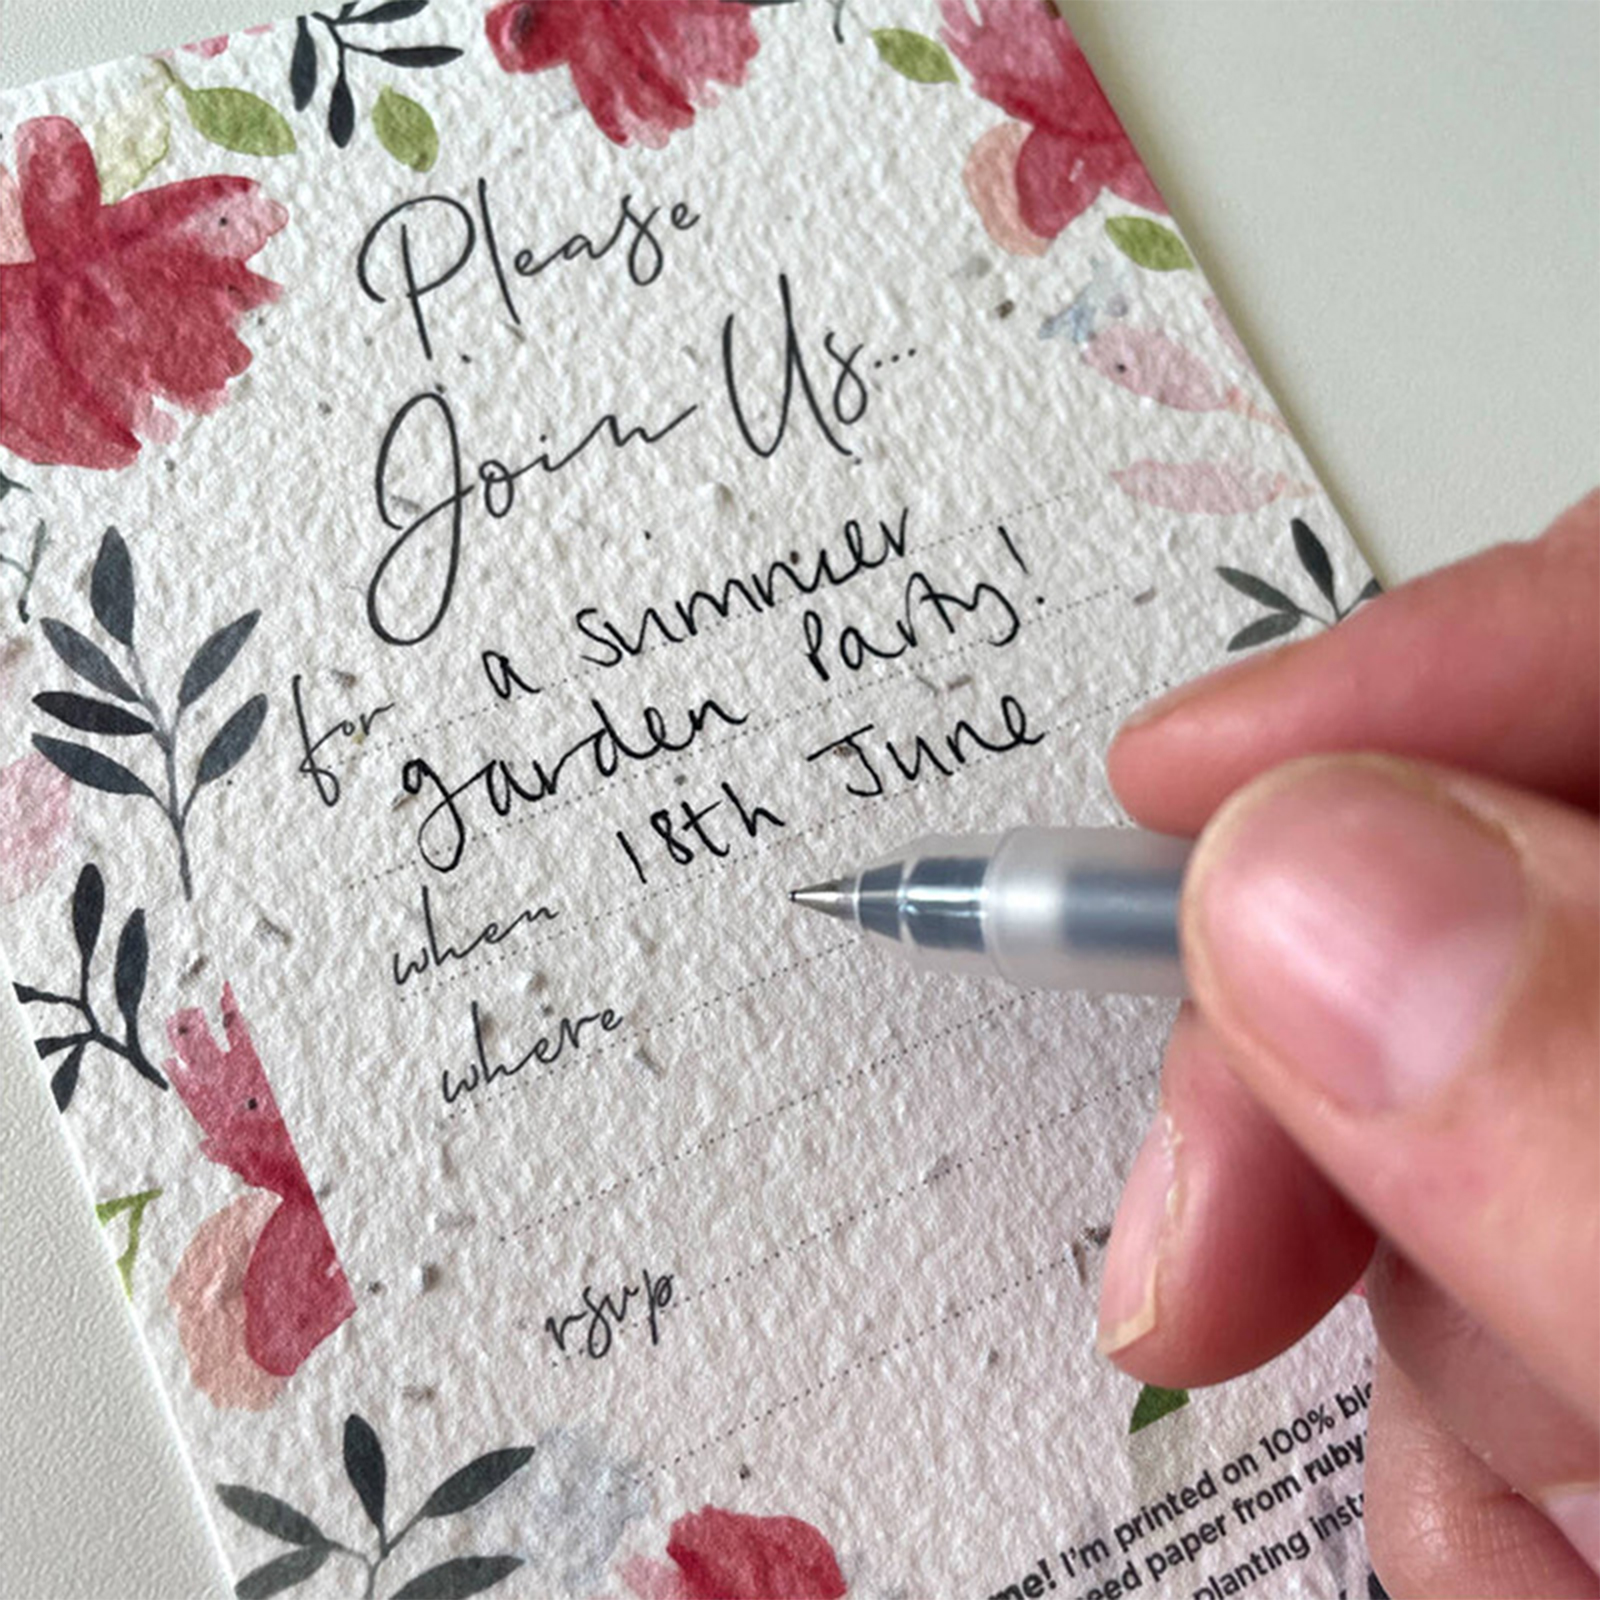 Please
Join Us...
for a summer
garden Party!
when 18th June
where
rsvp
me! I'm printed on 100%
paper from ruby
planting